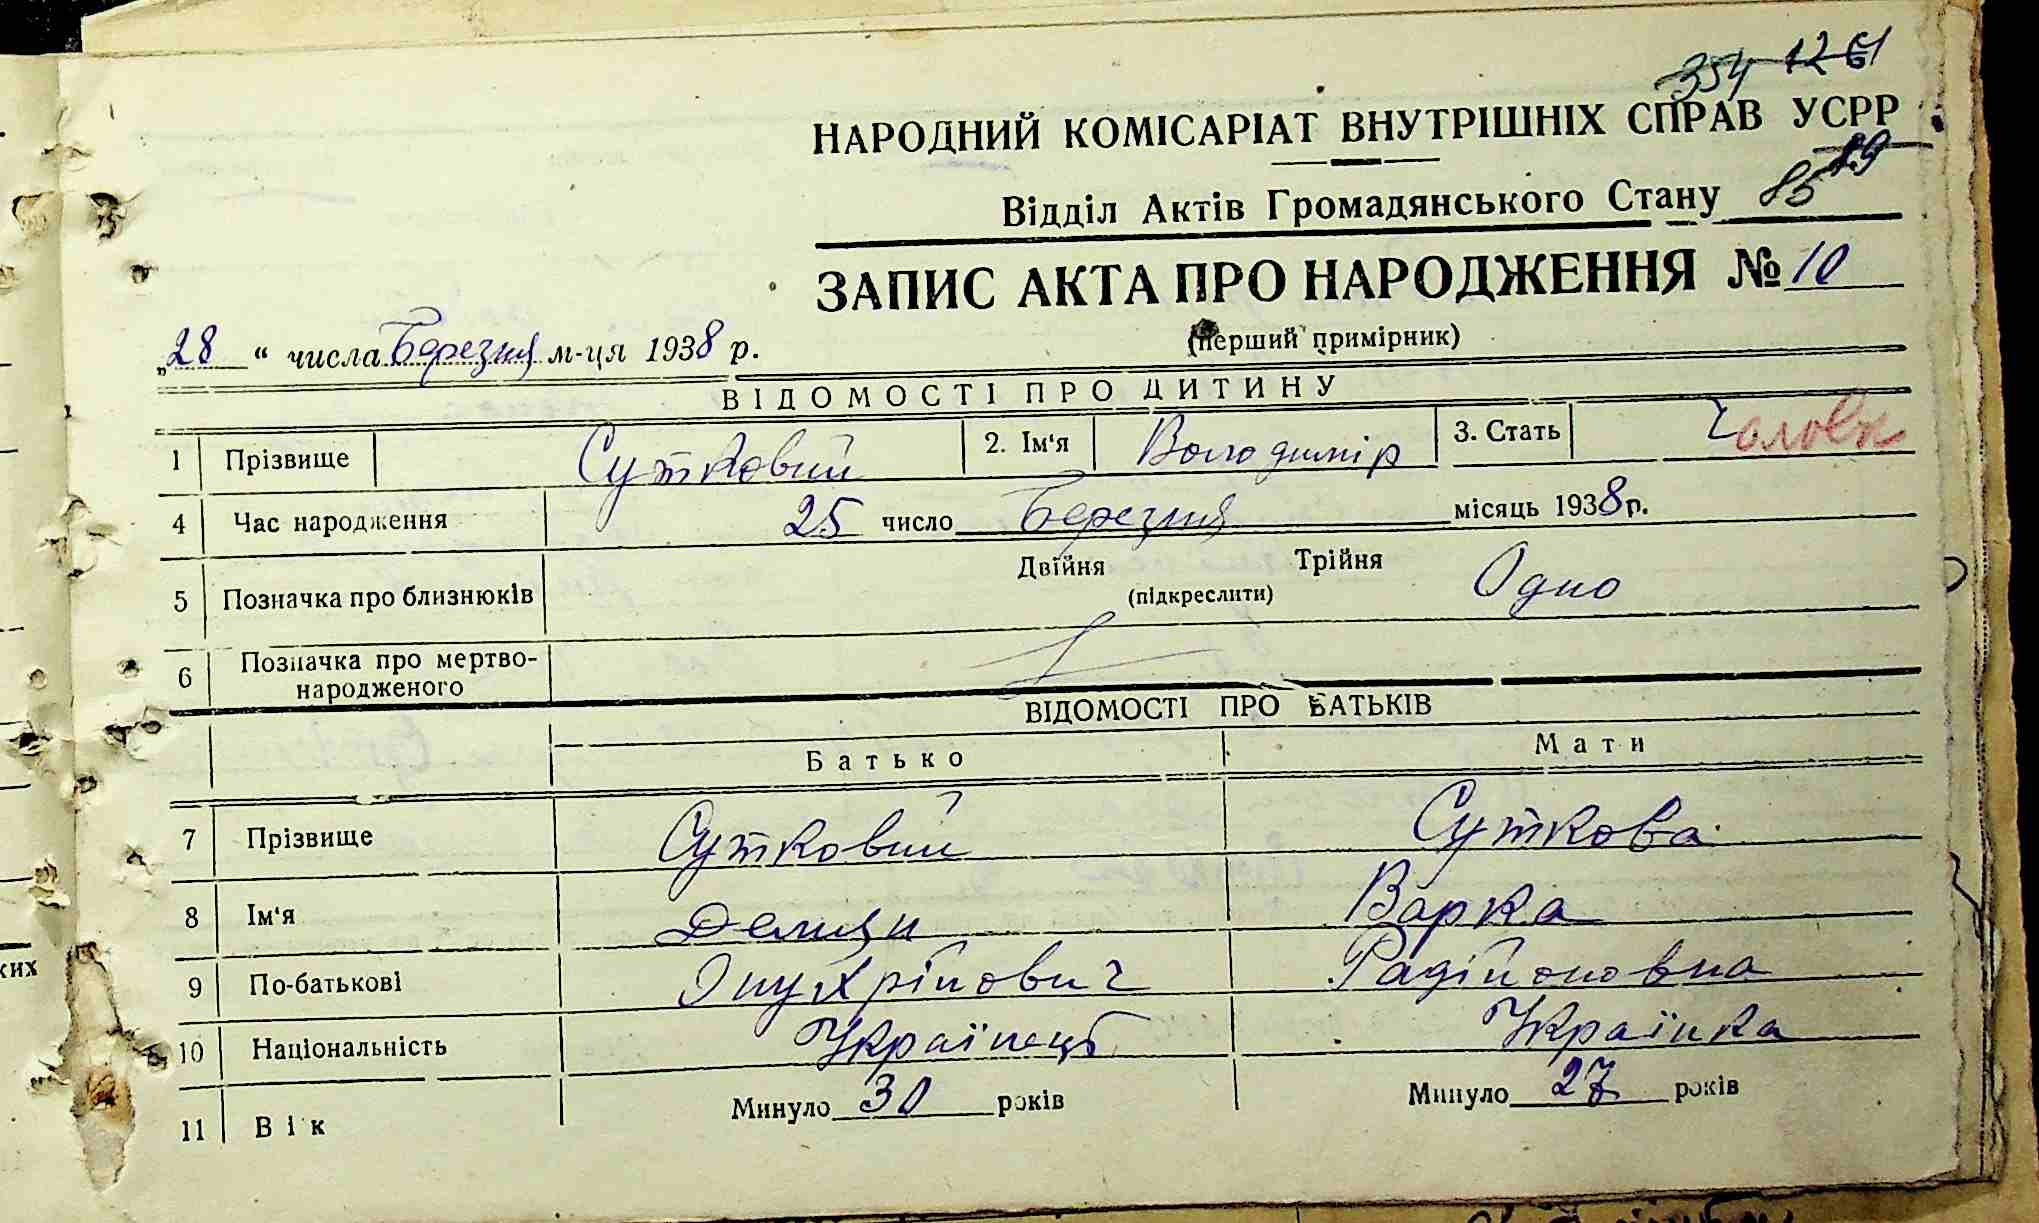 354 1261
НАРОДНИЙ КОМІСАРІАТ ВНУТРІШНІХ СПРАВ УСРР
89
Відділ Актів Громадянського Стану 85
ЗАПИС АКТА ПРО НАРОДЖЕННЯ № 10
(перший примірник)
„28“ числа Березня м-ця 1938 р.
ВІДОМОСТІ ПРО ДИТИНУ
1 Прізвище Сутковий 2. Ім'я Володимір 3. Стать Чоловік
4 Час народження 25 число Березня місяць 1938 р.
5 Позначка про близнюків Двійня Трійня Одно
(підкреслити)
6 Позначка про мертво-
народженого
ВІДОМОСТІ ПРО БАТЬКІВ
Батько Мати
7 Прізвище Сутковий Суткова
8 Ім'я Варка
9 По-батькові Радійоновна
10 Національність Українець Українка
11 Вік Минуло 30 років Минуло 27 років
ких